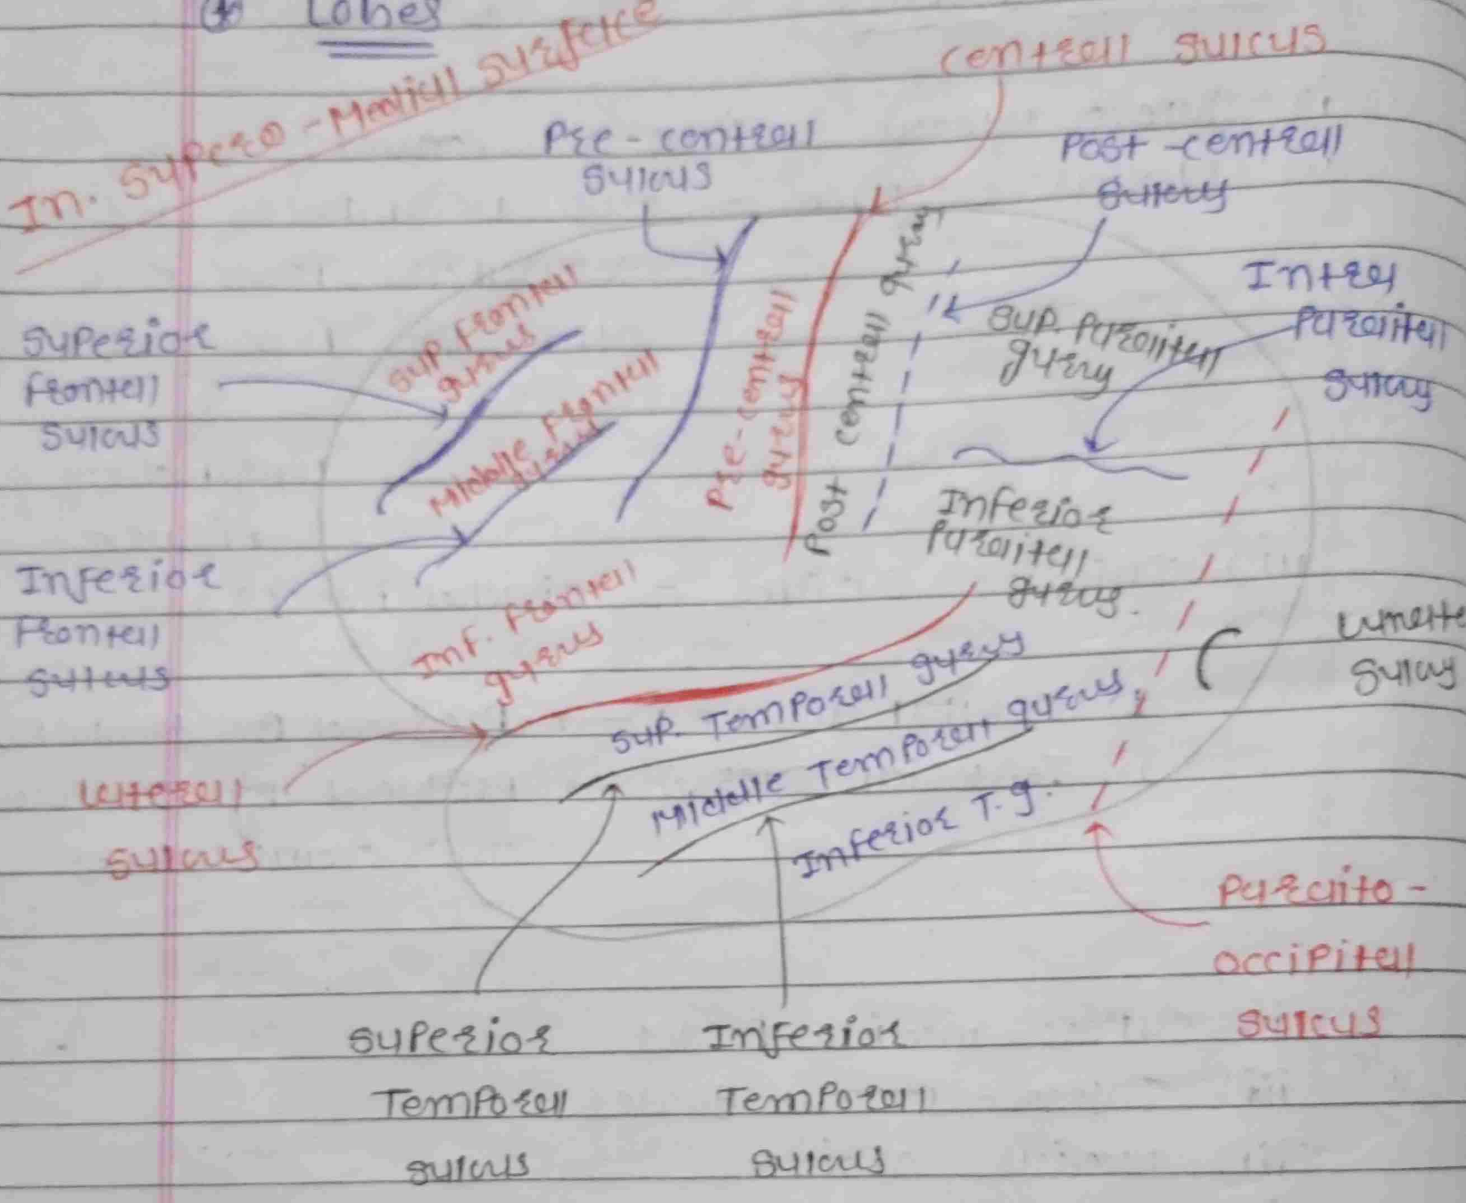 Lobes
In. Supero-Medial Surface
Central Sulcus
Pre-central
Sulcus
Post-central
Sulcus
Superior
Frontal
Sulcus
Sup. Frontal
gyrus
Middle Frontal
gyrus
Pre-central
gyrus
Post central gyrus
Sup. Paraital
gyrus
Intra
Paraital
Sulcus
Inferior
Paraital
gyrus.
Inferior
Frontal
Sulcus
Inf. Frontal
gyrus
Lunate
Sulcus
Sup. Temporal gyrus
Middle Temporal gyrus
Inferior T.g.
Lateral
Sulcus
Paraito-
occipital
Sulcus
Superior
Temporal
Sulcus
Inferior
Temporal
Sulcus